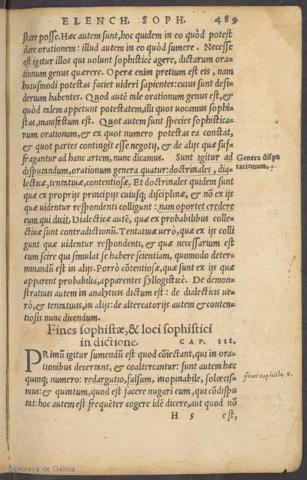 ELENCH. SOPH. 489
stare posse. Hæc autem sunt, hoc quidem in eo quòd potest
dare orationem: illud autem in eo quòd sumere. Necesse
est igitur illos qui volunt sophisticè agere, dictarum ora-
tionum genus quærere. Operæ enim pretium est eis, nam
huiusmodi potestas faciet videri sapientes: cuius sunt desi-
derium habentes. Quòd autē tale orationum genus est, &
quòd talem appetunt potestatem, illi quos vocamus sophi-
stas, manifestum est. Quot autem sunt species sophistica-
rum orationum, & ex quot numero potestas ea constat,
& quot partes contingit esse negotij, & de alijs quæ suf-
fragantur ad hanc artem, nunc dicamus. Sunt igitur ad
disputandum, orationum genera quatuor: doctrinales, dia-
Genera disputa
rationum.
lecticæ, tentatiuæ, contentiosæ. Et doctrinales quidem sunt
quæ ex proprijs principijs cuiusq; disciplinæ, & nō ex ijs
quæ videntur respondenti colligunt: nam oportet credere
eum qui discit. Dialecticæ autē, quæ ex probabilibus colle-
ctiuæ sunt contradictionū. Tentatiuæ verò, quæ ex ijs colli
gunt quæ videntur respondenti, & quæ necessarium est
eum scire qui simulat se habere scientiam, quomodo deter-
minandū est in alijs. Porrò cōtentiosæ, quæ sunt ex ijs quæ
apparent probabilia, apparentes syllogisticè. De demon-
stratiuis autem in analyticis dictum est: de dialecticis ve-
rò, & tentatiuis, in alijs: de altercatorijs autem & conten-
tiosis nunc dicendum.
Fines sophistæ, & loci sophistici
in dictione. CAP. III.
PRimū igitur sumendū est quot cōiectant, qui in ora-
tionibus decertant, & coaltercantur: sunt autem hæc
quinq; numero: redargutio, falsum, inopinabile, solœcis-
mus: & quintum, quod est facere nugari eum, qui cōdispu
tat: hoc autem est frequēter cogere idē dicere, aut quod nō
H 5 est,
Biblioteca de Galicia